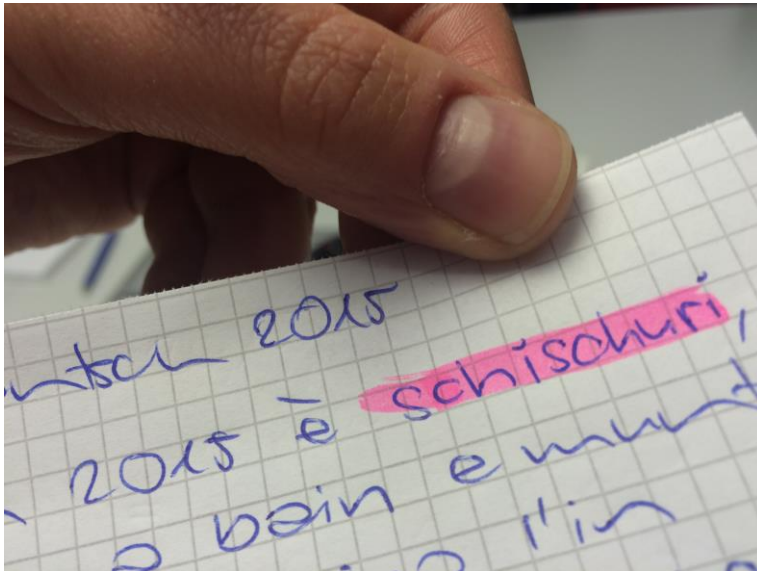 2015
2015 è schischuri,
bain e munt
l'in